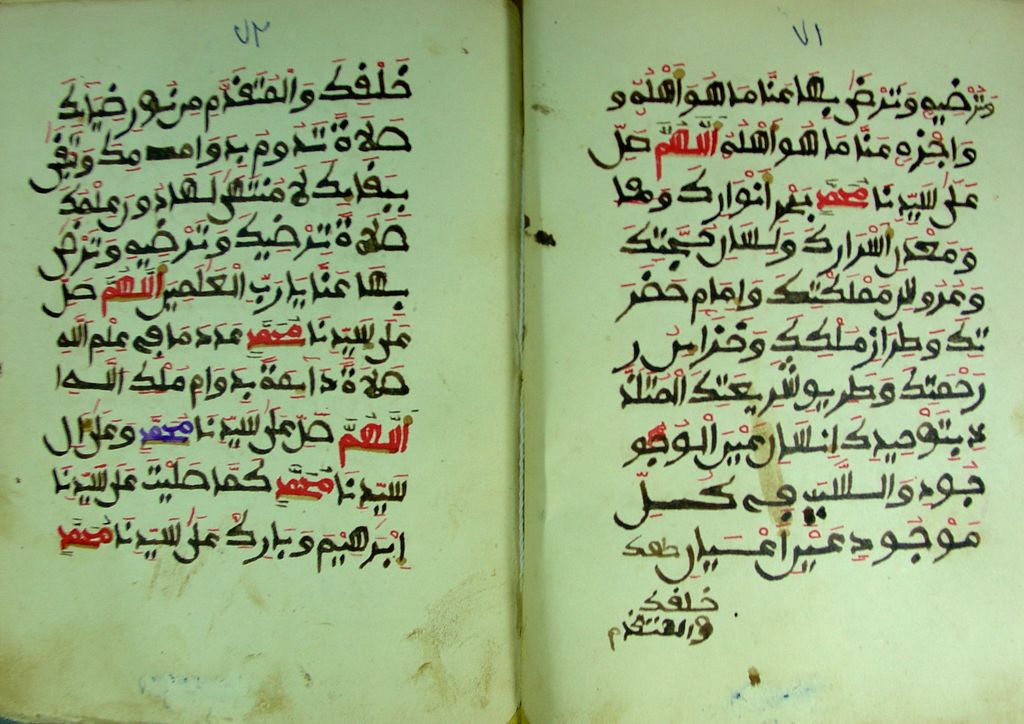 ٧١
وترضيه وترض بها عنا ما هو اهله و
واجزه عنا ما هو اهله اللهم صل
على سيدنا محمد بحر انوارك و
ومعدن اسرارك ولسان حجتك
وعروس مملكتك وامام حضر
تك وطراز ملكك وخزاىن ر
رحمتك وطريق شريعتك المتلذ
ذ بتوحيدك انسان عين الوجو
جود والسبب في كل
موجود عين اعيان
خلفك
والمتقدم
٧٢
خلفك والمتقدم من نور ضياىك
صلاة تدوم بدوامك وتبقى
ببقاىك لا منتهى لها دون علمك
صلاة ترضيك وترضيه وترض
بها عنا يا رب العلمين اللهم صل
على سيدنا محمد عدد ما في علم الله
صلاة داىمة بدوام ملك الله ا
اللهم صل على سيدنا محمد وعلى ال
سيدنا محمد كما صليت على سيدنا
ابرهيم وبارك على سيدنا محمد